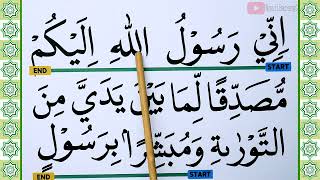 اِنِّيْ رَسُوْلُ اللهِ اِلَيْكُمْ
END START
مُّصَدِّقًا لِّمَا بَيْنَ يَدَيَّ مِنَ
التَّوْرٰىةِ وَمُبَشِّرًاۢ بِرَسُوْلٍ
END START